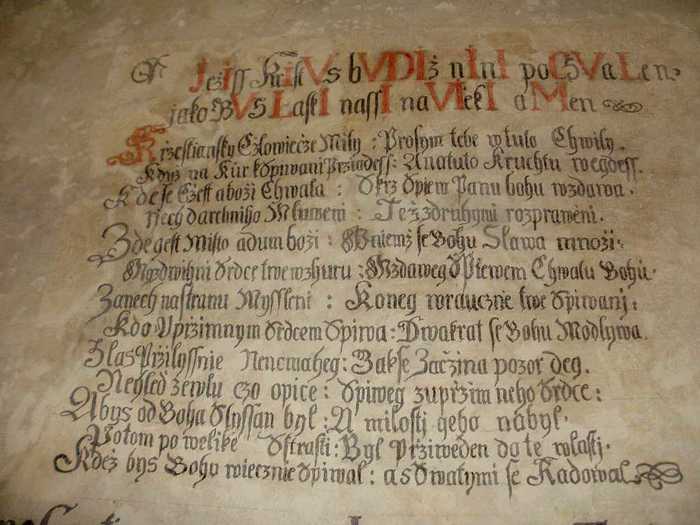 Ježiss Kristus bVDIž nInI poChVaLen
jako V nás Laski nassI na VIekI aMen
Krzestiansky Czlowiecze Mily : Prosym tebe wtuto Chwily.
Kdyz na Kur k Spiwani Przigdess: A natuto Kruchtu wegdess.
Kdese Czest a boži Chwala : Skrz Spiew Panu bohu wzdawa.
Nech darebniho Mluweni : Též z druhymi rozpraweni.
Zde gest Misto a dum boži : Wniemž se Bohu Slawa množi.
Pozdwihni Srdce twe wzhuru : Wzdaweg S Spiewem Chwalu Bohu.
Zanech nastranu Myssleni : Koneg wraucznie twe Spiwani :
Kdo Vpržimnym Srdcem Spiwa : Dwakrat se Bohu Modlywa.
Hlas Pržilyssnie Nencwaheg : Zakse Začzina pozor deg.
Nehled žewlu czo opice : Spiweg zupržimneho Srdce :
Abys od Boha Slyssan byl : A milosti geho nabyl.
Potom po welike Strasti : By l Przíweden do te wlasti.
Kdež bys Bohu wiecznie Spiwal : a s Swatymi se Radowal